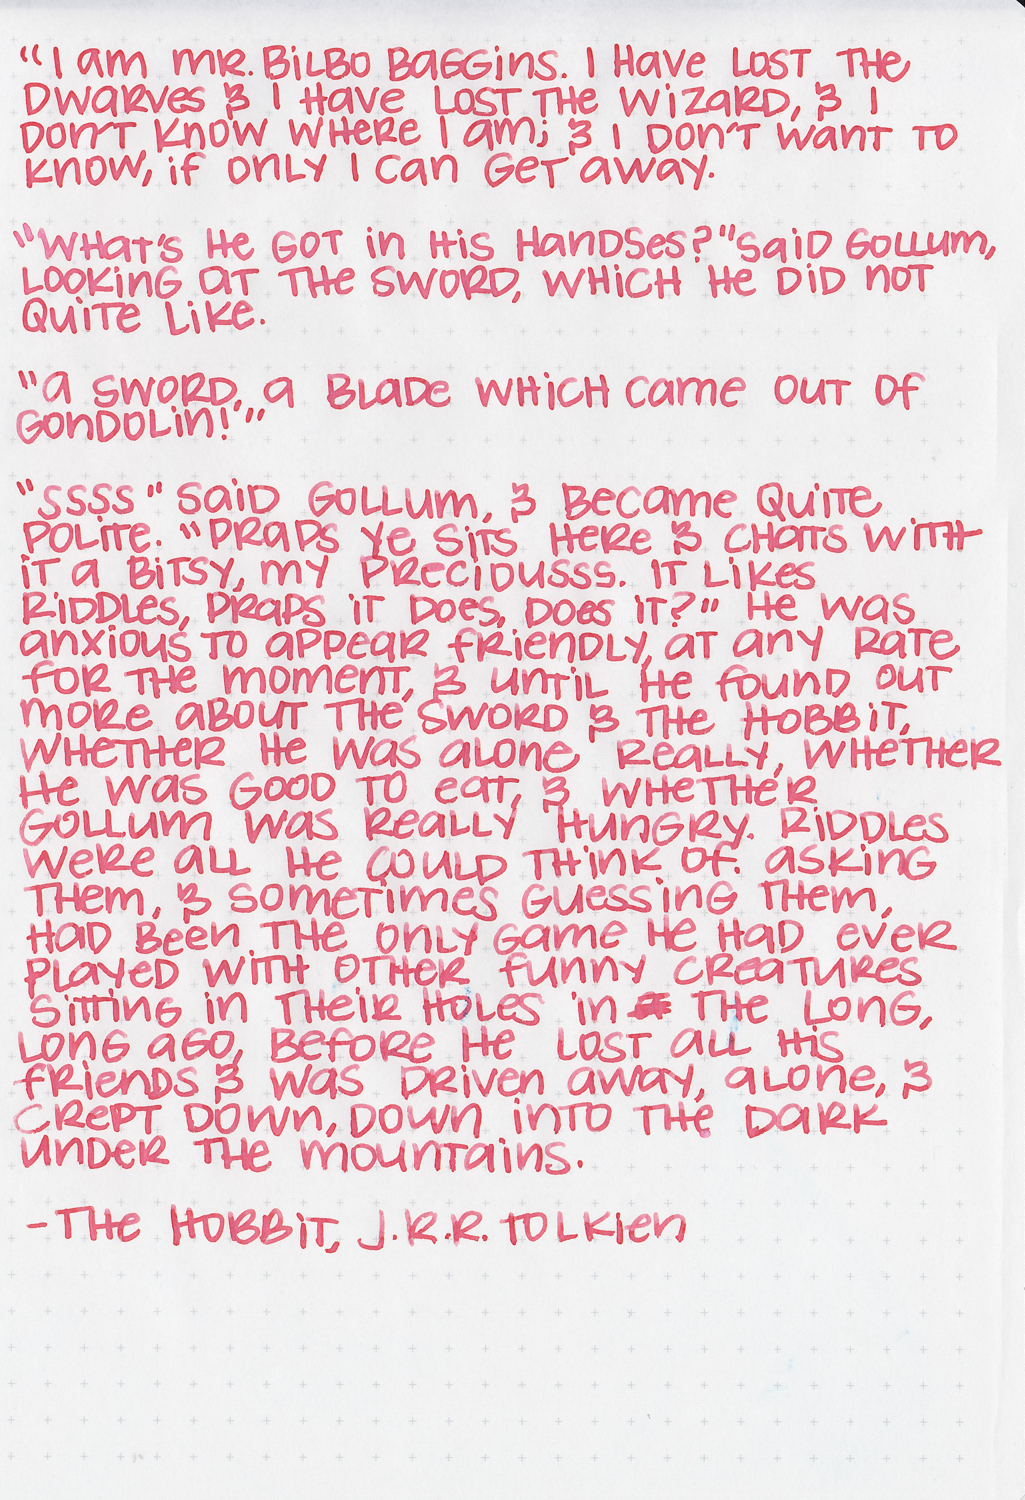 "I am Mr. Bilbo Baggins. I have lost the
dwarves & I have lost the wizard, & I
don't know where I am; & I don't want to
know, if only I can get away.
"What's he got in his handses?" said Gollum,
looking at the sword, which he did not
quite like.
"A sword, a blade which came out of
Gondolin!"
"Ssss" said Gollum, & became quite
polite. "Praps ye sits here & chats with
it a bitsy, my preciousss. It likes
riddles, praps it does, does it?" He was
anxious to appear friendly, at any rate
for the moment, & until he found out
more about the sword & the hobbit,
whether he was alone really, whether
he was good to eat, & whether
Gollum was really hungry. Riddles
were all he could think of. Asking
them, & sometimes guessing them,
had been the only game he had ever
played with other funny creatures
sitting in their holes in the long,
long ago, before he lost all his
friends & was driven away, alone, &
crept down, down into the dark
under the mountains.
- The Hobbit, J.R.R. Tolkien